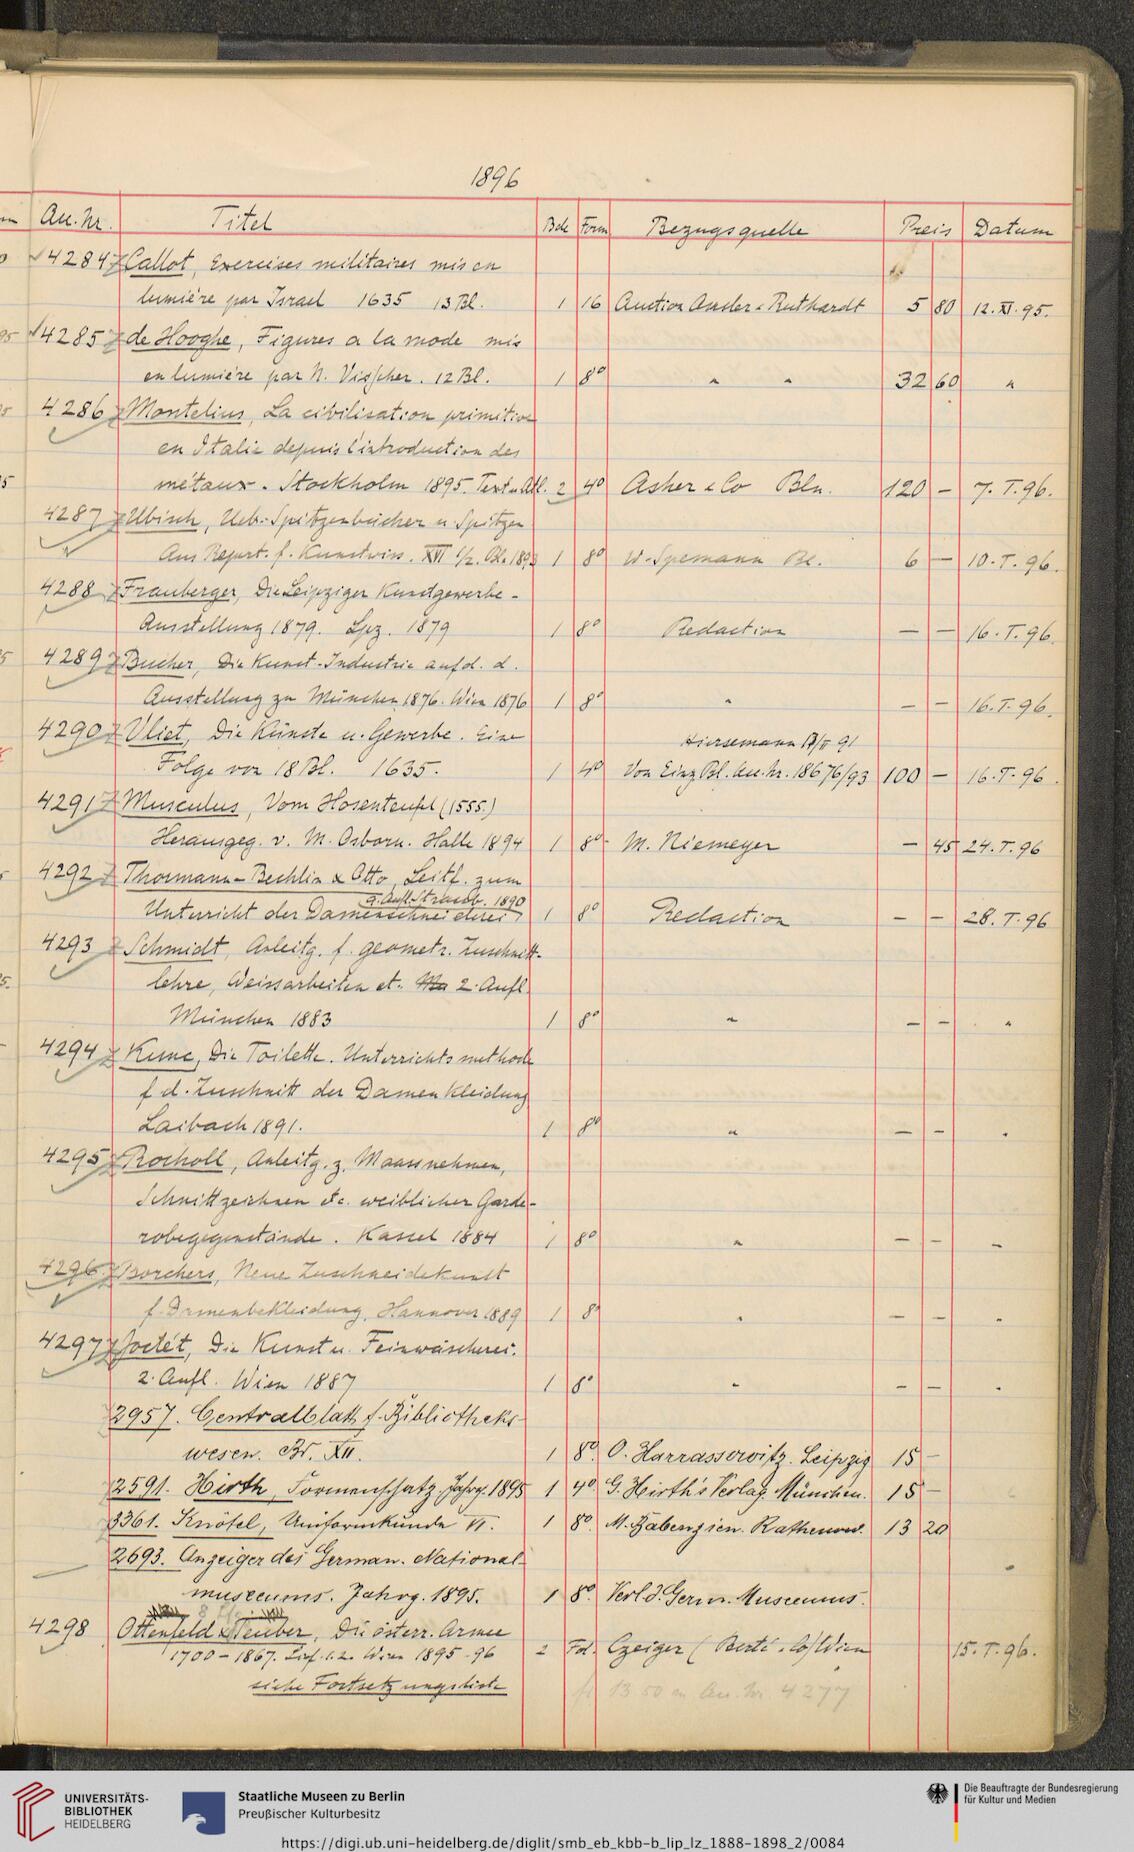 1896
Au. Nr. Titel Bde Form Bezugsquelle Preis Datum
4284 Callot, Exercises militaires mis en
lumière par Israel 1635 13 Bl. 1 16 Auction Amsler & Ruthardt 5 80 12. XI. 95.
4285 de Hooghe, Figures a la mode mis
en lumière par N. Visscher. 12 Bl. 1 8° " " 32 60 "
4286 Montelius, La civilisation primitive
en Italie depuis l'introduction des
métaux. Stockholm 1895. Text u. Atl. 2 4° Asher & Co Bln. 120 – 7. I. 96.
4287 Ubisch, Ueb. Spitzenbücher u. Spitzen
Aus Repert. f. Kunstwiss. XVI 1/2. Bln. 1893 1 8° W. Spemann Bl. 6 – 10. I. 96.
4288 Frauberger, Die Leipziger Kunstgewerbe-
Ausstellung 1879. Lpz. 1879 1 8° Redaction – – 16. I. 96.
4289 Bucher, Die Kunst-Industrie auf d. d.
Ausstellung zu München 1876. Wien 1876 1 8° " – – 16. I. 96.
4290 Vliet, Die Künste u. Gewerbe. Eine
Hiersemann 17/II 91
Folge von 18 Bl. 1635. 1 4° Von Einz. Bl. Au. Nr. 18676/93 100 – 16. I. 96.
4291 Musculus, Vom Hosenteufel (1555.)
Herausgeg. v. M. Osborn. Halle 1894 1 8° M. Niemeyer – 45 24. I. 96
4292 Thormann-Bechlin & Otto, Leitf. zum
9. Aufl. Straub. 1890
Unterricht der Damenschneiderei 1 8° Redaction – – 28. I. 96
4293 Schmidt, Anleitg. f. geometr. Zuschnitt-
lehre, Weissarbeiten et. 2. Aufl.
München 1883 1 8° " – – "
4294 Kunc, Die Toilette. Unterrichtsmethode
f. d. Zuschnitt der Damenkleidung
Laibach 1891. 1 8° " – – "
4295 Rocholl, Anleitg. z. Maassnehmen,
Schnittzeichnen etc. weiblicher Garde-
robegegenstände. Kassel 1884 1 8° " – – "
4296. Borchers, Neue Zuschneidekunst
f. Damenbekleidung, Hannover 1889 1 8° " – – "
4297 Joclét, Die Kunst u. Feinwäscherei.
2. Aufl. Wien 1887 1 8° " – – "
2957. Centralblatt f. Bibliotheks-
wesen. Bd. XII. 1 8° O. Harrassowitz. Leipzig 15 –
2591. Hirth, Formenschatz. Jahrg. 1895 1 4° G. Hirth's Verlag. München. 15 –
3361. Knötel, Uniformkunde VI. 1 8° M. Babenzien. Rathenow. 13 20
2693. Anzeiger des German. National-
museums. Jahrg. 1895. 1 8° Verl. d. Germ. Museums.
4298 Ottenfeld & Teuber, Die österr. Armee
1700–1867. Lief. 1.2. Wien 1895-96 2 Fol. Czeiger (Berté & Co) Wien 15. I. 96.
siehe Fortsetzungsliste fl 13 50 an Au. Nr. 4277
UNIVERSITÄTS-
BIBLIOTHEK
HEIDELBERG
Staatliche Museen zu Berlin
Preußischer Kulturbesitz
Die Beauftragte der Bundesregierung
für Kultur und Medien
https://digi.ub.uni-heidelberg.de/diglit/smb_eb_kbb-b_lip_lz_1888-1898_2/0084